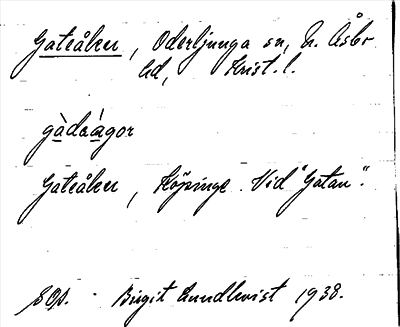 Gateåker, Oderljunga sn, N. Åsbo
hd, Krist. l.
gàdaàgor
Gateåker, Köpinge. Vid "Gatan".
SOA. Birgit Lundkvist 1938.